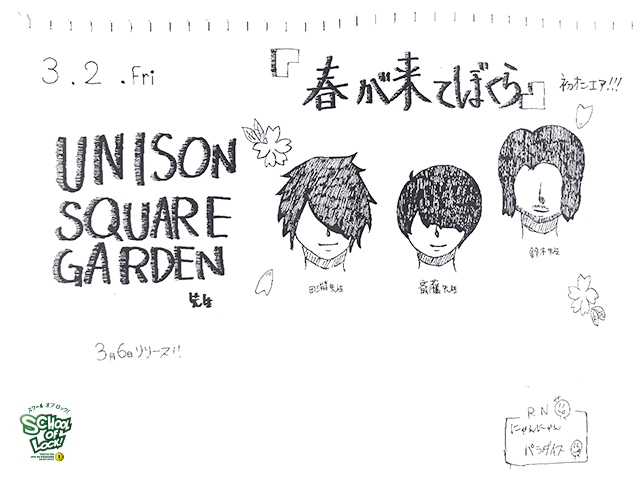 3.2.Fri
『春が来てぼくら』
初オンエア!!!
UNISON
SQUARE
GARDEN
先生
田淵先生
斎藤先生
鈴木先生
3月6日リリース!!
スクール オブ ロック!
SCHOOL
OF
LOCK!
R.N
にゃんにゃん
パラダイス